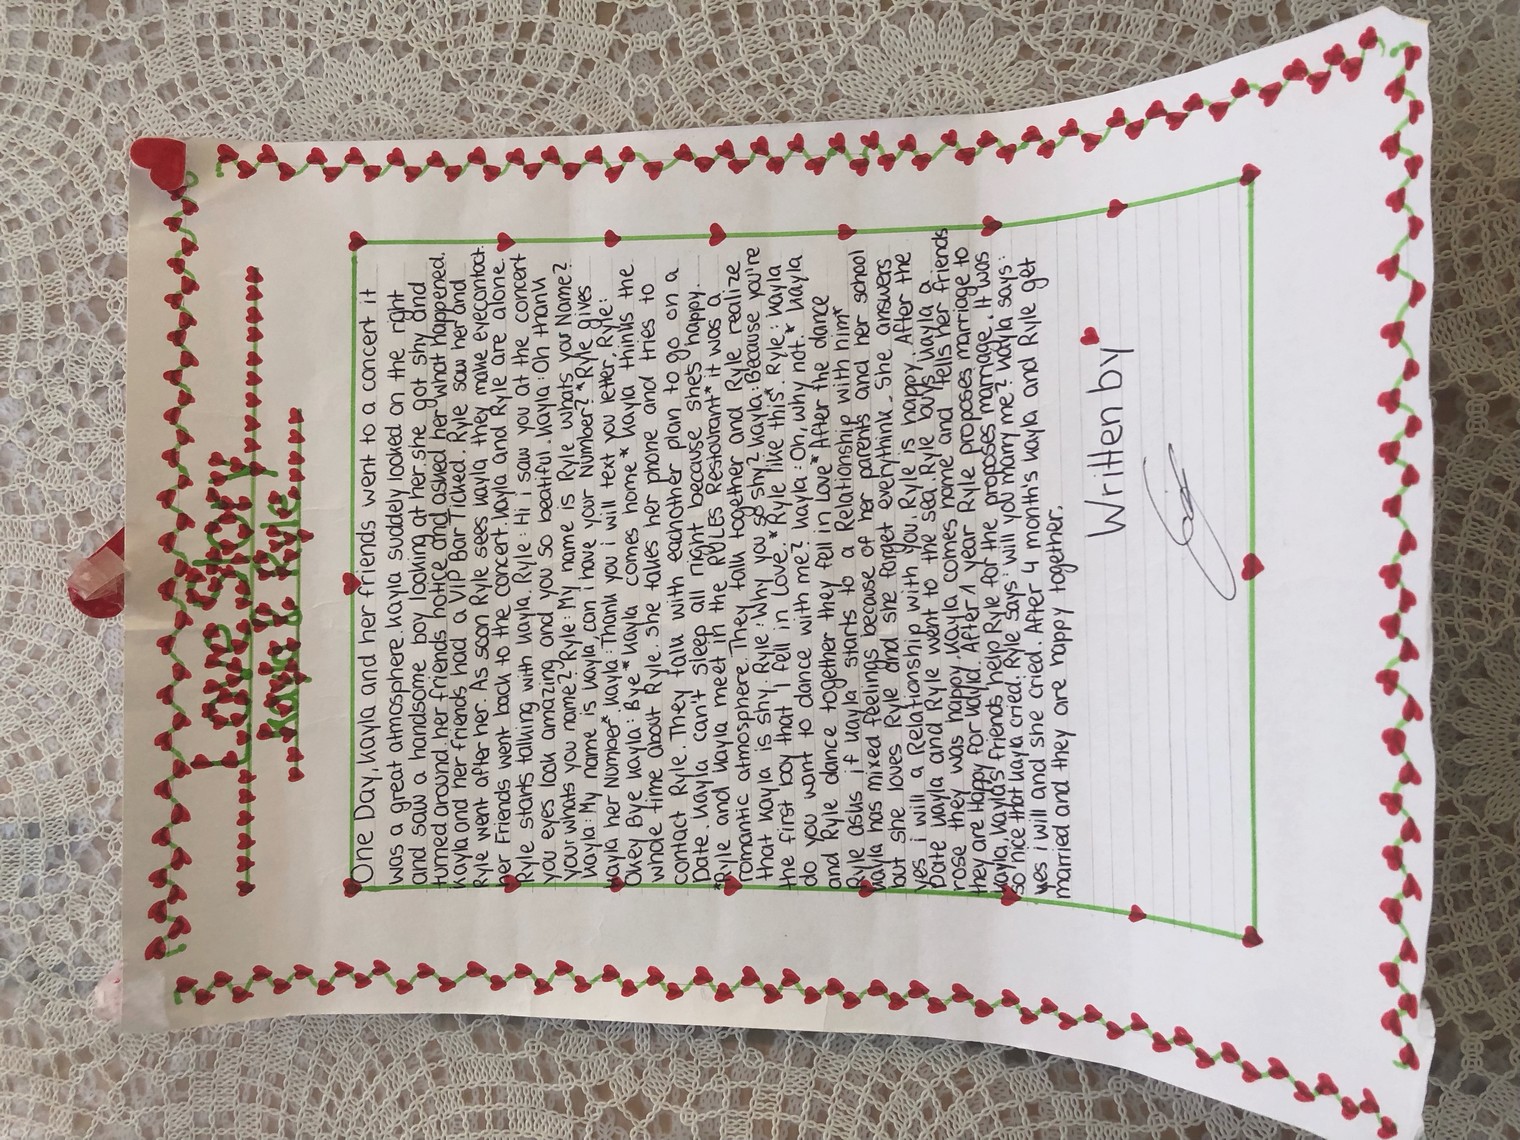 Love Story
Kayla & Ryle
One Day, Kayla and her friends went to a concert it
was a great atmosphere. Kayla suddely looked on the right
and saw a handsome boy looking at her. she got shy and
turned around her friends notice and asked her what happened.
Kayla and her friends had a VIP Bar Ticked. Ryle saw her and
Ryle went after her. As soon Ryle sees Kayla, they make eyecontact.
her Friends went back to the concert. Kayla and Ryle are alone.
Ryle starts talking with Kayla. Ryle: Hi i saw you at the concert
you eyes look amazing and you so beatiful. Kayla: Oh thank
your whats you name? Ryle: My name is Ryle whats your Name?
Kayla: My name is Kayla, can i have your Number? *Ryle gives
Kayla her Number* Kayla: Thank you i will text you letter, Ryle:
Okey Bye Kayla: Bye* Kayla comes home* Kayla thinks the
whole time about Ryle. she takes her phone and tries to
contact Ryle. They talk with eachother plan to go on a
Date. Kayla can't sleep all night because shes happy.
*Ryle and Kayla meet in the RULES Restourant* it was a
romantic atmosphere. They talk together and Ryle realize
that Kayla is shy. Ryle: Why you so shy? Kayla: Because you're
the first boy that i fell in Love. *Ryle like this*. Ryle: Kayla
do you want to dance with me? Kayla: Oh, why not. * Kayla
and Ryle dance together they fell in Love* After the dance
Ryle asks if Kayla starts to a Relationship with him*
Kayla has mixed feelings because of her parents and her school
but she loves Ryle and she forget everythink. She answers
yes i will a Relationship with you. Ryle is happy. After the
Date Kayla and Ryle went to the sea. Ryle buys Kayla a
rose they was happy. Kayla comes home and tells her friends
they are Happy for Kayla. After 1 year Ryle proposes marriage to
Kayla, Kayla's Friends help Ryle for the proposes marriage. It was
so nice that Kayla cried. Ryle says: will you marry me? Kayla says:
yes i will and she cried. After 4 months Kayla and Ryle get
married and they are happy together.
Written by